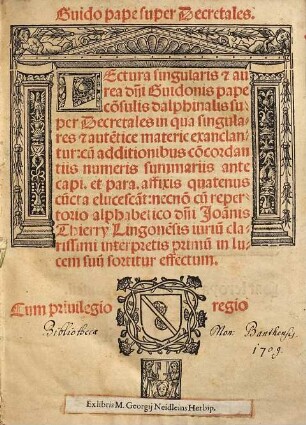 Guido pape super Decretales.
Lectura singularis & au
rea dñi Guidonis pape
cōsulis dalphinalis su
per Decretales in qua singula
res & autētice materie exanclan
tur: cū additionibus cōcordan
tiis numeris summariis ante
capi. et para. affixis quatenus
cūcta elucescāt: necnō cū reper
torio alphabetico dñi Joānis
Thierry Lingonēsis iuriū cla
rissimi interpretis primū in lu
cem suū sortitur effectum.
Cum privilegio regio
Bibliotheca Mon: Banthensis
1709.
Ex libris M. Georgij Neidleins Herbip.